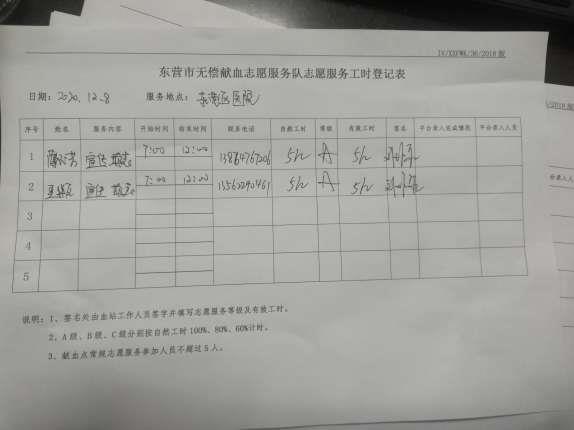 IV/XXFWK/36/2018版
东营市无偿献血志愿服务队志愿服务工时登记表
日期：2020.12.8 服务地点：东营区医院
序号 姓名 服务内容 开始时间 结束时间 联系电话 自然工时 等级 有效工时 签名 平台录入完成情况 平台录入人员
1 宣传 7:00 12:00 5h A 5h
2 宣传 7:00 12:00 5h A 5h
3
4
5
说明：1、签名处由血站工作人员签字并填写志愿服务等级及有效工时。
2、A级、B级、C级分别按自然工时100%、80%、60%计时。
3、献血点常规志愿服务参加人员不超过5人。